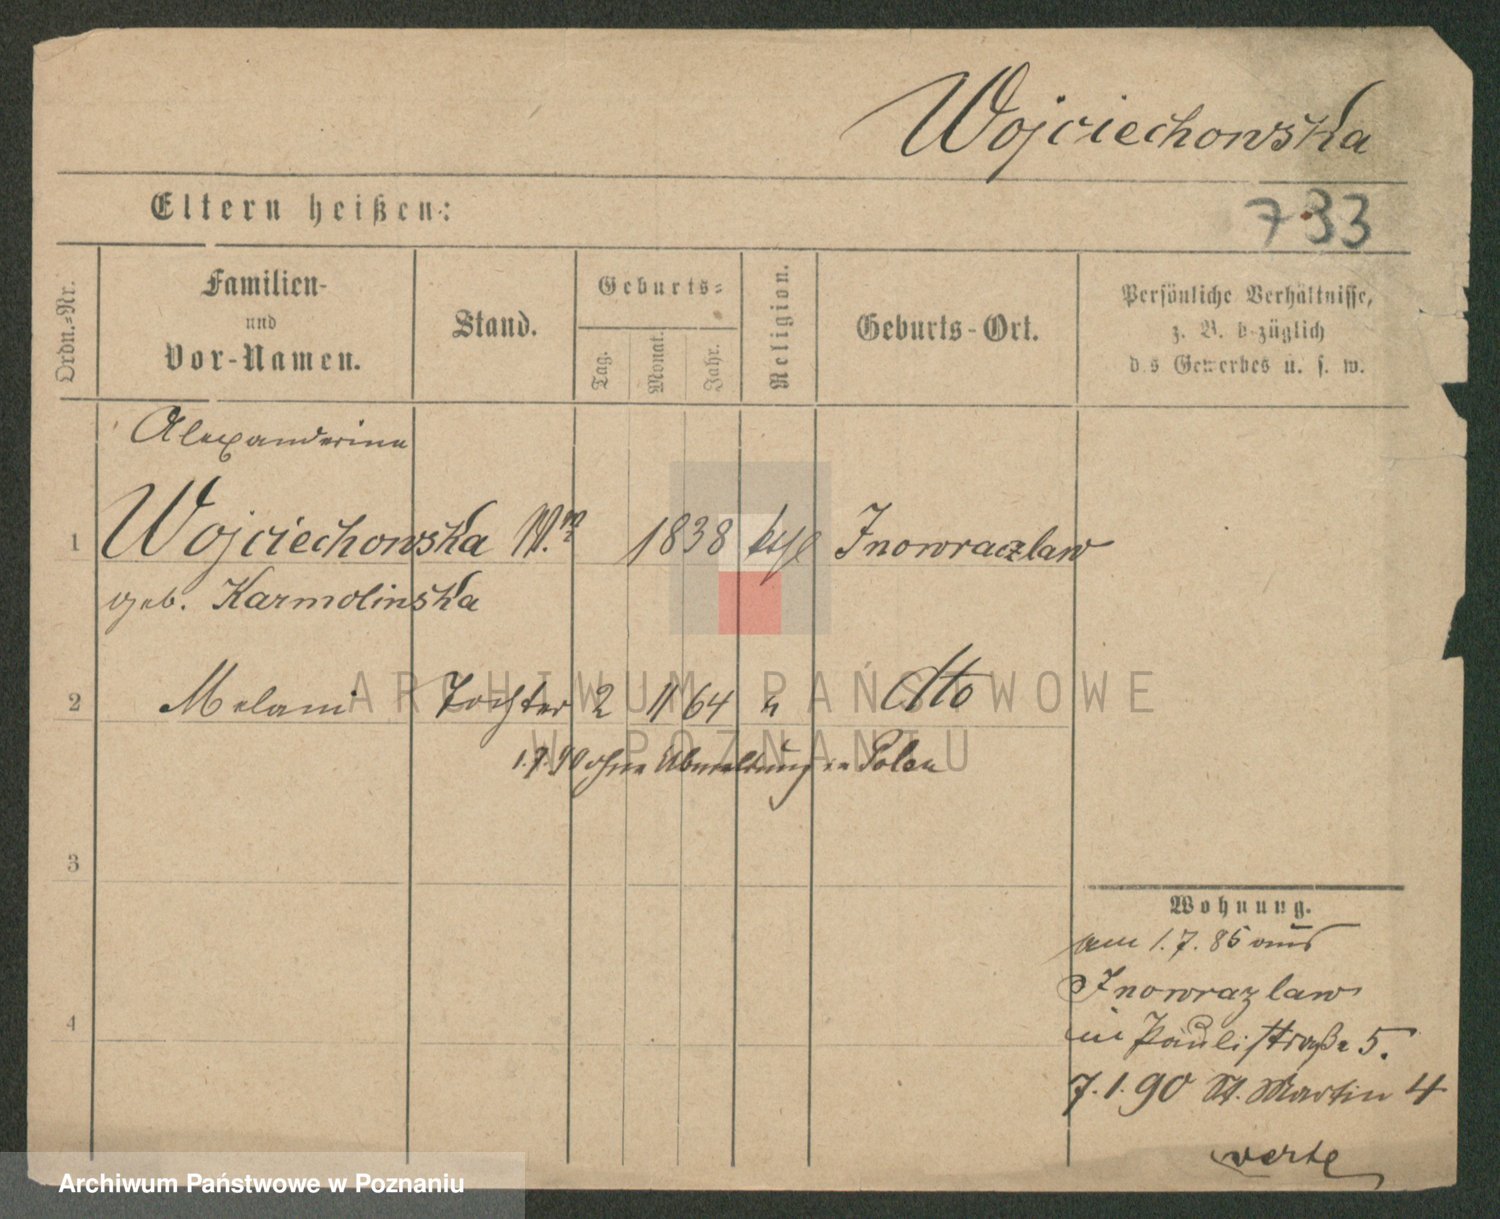 Wojciechowska
Eltern heißen:
733
Ordn.-Nr.
Familien-
und
Vor-Namen.
Stand.
Geburts-
Tag.
Monat.
Jahr.
Religion.
Geburts-Ort.
Persönliche Verhältnisse,
z. B. bezüglich
des Gewerbes u. s. w.
Alexanderine
1 Wojciechowska 1838 Inowraczlaw
geb. Karmolinska
2 Melani Tochter 2 11 64 " dto
1.7.90 ohne Abmeldung in Polen
3
4
Wohnung.
am 1.7.85 aus
Inowrazlaw
in Paulistraße 5.
7.1.90 St. Martin 4
verte
ARCHIWUM PAŃSTWOWE
W POZNANIU
Archiwum Państwowe w Poznaniu